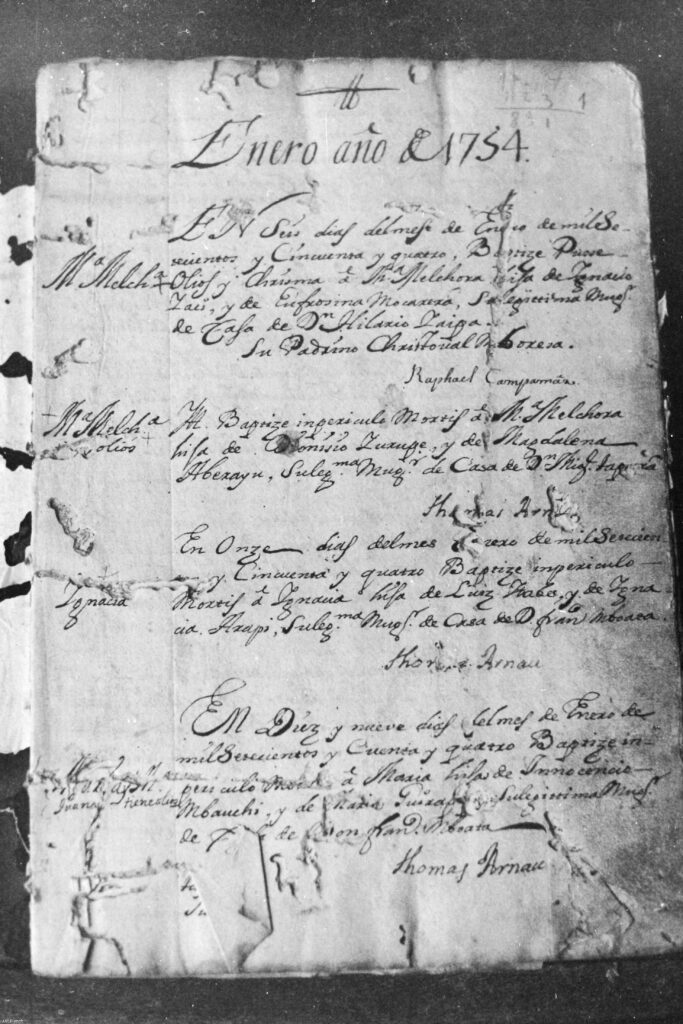 Enero año de 1754.
EN Seis dias del mes de Enero de mil Se-
tecientos y Cinquenta y quatro, Baptize Puse
Mª Melchª
Olios y Chrisma â Mª Melchora hija de Ignacio
y de Eufrosina Mocarara, Su legittima Mugr.
de Casa de Dn Hilario Zaipa.
Su Padrino Christoval Mboresa.
Raphael Campamar.
Mª Melchª
Baptize in periculo Mortis â Mª Melchora
olios
hija de Dionisio Zurupe, y de Magdalena
Aberayu, Su legma Mugr de Casa de Dn Migl.
Thomas Arnau
En Onze dias del mes Enero de mil Setecien
y Cincuenta y quatro Baptize in periculo
Ignacia
Mortis â Ignacia hija de Luiz y de Igna
cia Arapi, Su legma Mugr. de Casa de D franco Mboaca.
Thomas Arnau
EN Diez y nueve dias del mes de Enero de
mil Setecientos y Cuenta y quatro Baptize in
periculo Mortis â Maria hija de Innocencio
Mbauchi, y de Maria Su legittima Mugr.
de de Don franco Mboata
Thomas Arnau
Su